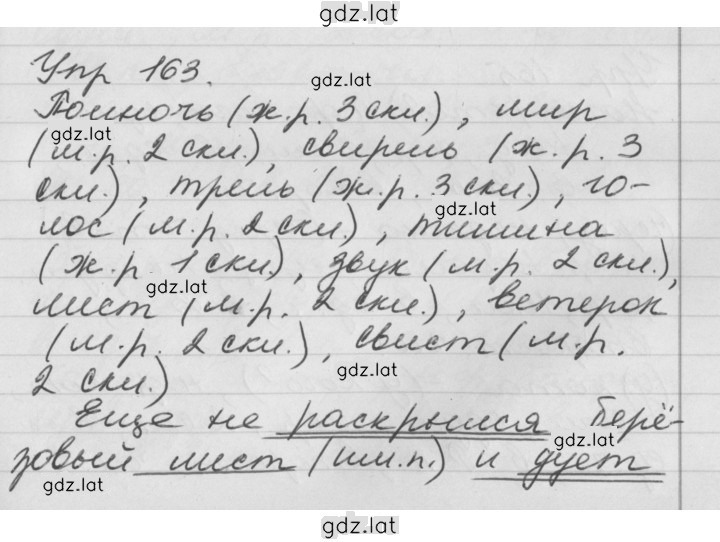 gdz.lat
Упр 163.
gdz.lat
Полночь (ж.р. 3 скл.), мир
gdz.lat
(м.р. 2 скл.), свирель (ж.р. 3
скл.), трель (ж.р. 3 скл.), го-
gdz.lat
лос (м.р. 2 скл.), тишина
(ж.р. 1 скл.), звук (м.р. 2 скл.),
gdz.lat
лист (м.р. 2 скл.), ветерок
(м.р. 2 скл.), свист (м.р.
gdz.lat
2 скл.)
Еще не раскрылся берё-
gdz.lat
зовый лист (им.п.) и дует
gdz.lat
gdz.lat